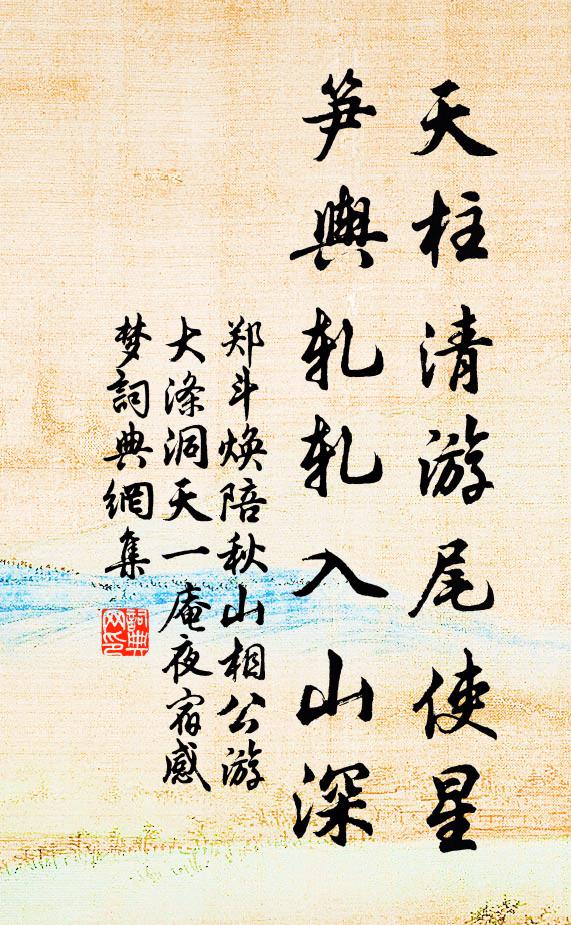 天柱清游尾使星
笋輿轧轧入山深
郑斗焕陪秋山相公游
大涤洞天一庵夜宿感
梦詞典網集
詞典
网印